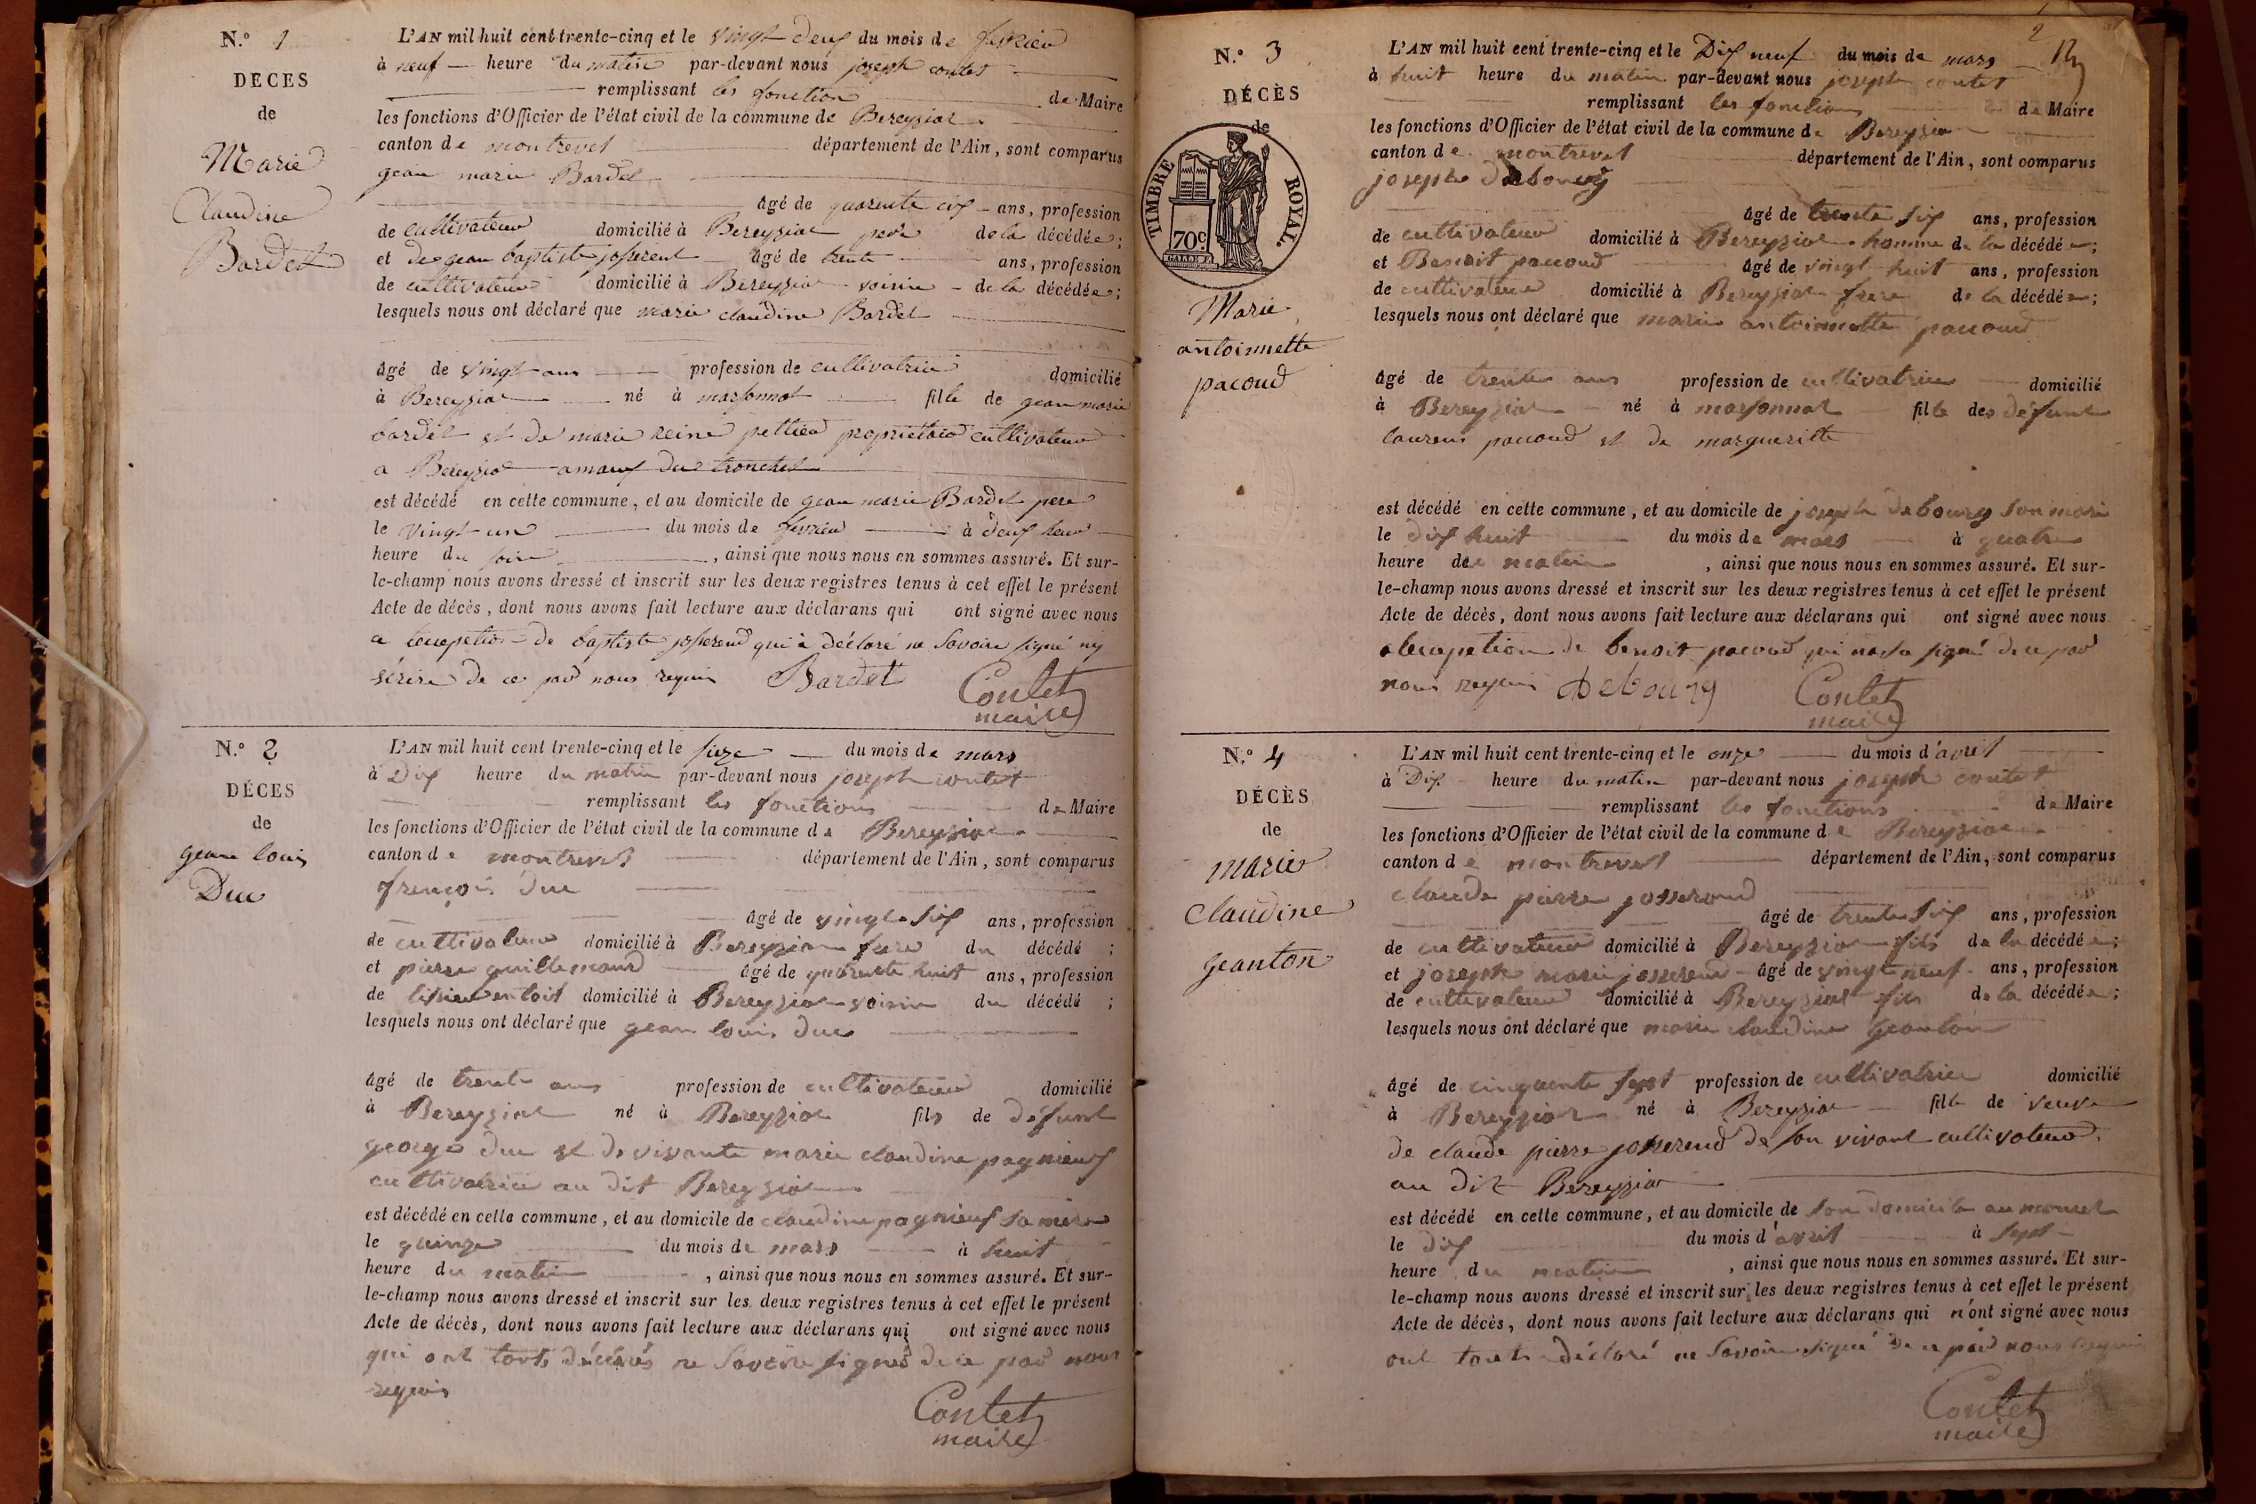 N.º 1
DÉCES
de
Marie
Claudine
Bardet
L'AN mil huit cent trente-cinq et le vingt deux du mois de fevrier
à neuf heure du matin par-devant nous joseph contet
remplissant les fonction de Maire
les fonctions d'Officier de l'état civil de la commune de Bereyziat
canton de montrevel département de l'Ain, sont comparus
gean marie Bardet
âgé de quarente six ans, profession
de cultivateur domicilié à Bereyziat pere de la décédée;
et de gean baptiste josserent âgé de trente ans, profession
de cultivateur domicilié à Bereyziat voisin de la décédée;
lesquels nous ont déclaré que marie claudine Bardet
âgé de vingt ans profession de cultivatrice domicilié
à Bereyziat né à marsonnat fille de gean marie
bardet et de marie reine pettier proprietaire cultivateur
a Bereyziat amaux du tronchet
est décédé en cette commune, et au domicile de gean marie Bardet pere
le vingt un du mois de fevrier à deux heur
heure du soire, ainsi que nous nous en sommes assuré. Et sur-
le-champ nous avons dressé et inscrit sur les deux registres tenus à cet effet le présent
Acte de décès, dont nous avons fait lecture aux déclarans qui ont signé avec nous
a lexcepetion de baptiste josserend qui à déclaré ne savoire signé ny
sérire de ce par nous requis Bardet Contet
maire
N.º 2
DÉCES
de
gean louis
Duc
L'AN mil huit cent trente-cinq et le sieze du mois de mars
à Dix heure du matin par-devant nous joseph contet
remplissant les fonctions de Maire
les fonctions d'Officier de l'état civil de la commune de Bereyziat
canton de montrevel département de l'Ain, sont comparus
françois duc
âgé de vingt six ans, profession
de cultivateur domicilié à Bereyziat frere du décédé;
et pierre guillemaud âgé de quarente huit ans, profession
de tissier en toit domicilié à Bereyziat voisin du décédé;
lesquels nous ont déclaré que gean louis duc
âgé de trente ans profession de cultivateur domicilié
à Bereyziat né à Bereyziat fils de défunt
george duc et de vivante marie claudine pagnieux
cultivatrice au dit Bereyziat
est décédé en cette commune, et au domicile de claudine pagnieux sa mère
le quinze du mois de mars à huit
heure du matin, ainsi que nous nous en sommes assuré. Et sur-
le-champ nous avons dressé et inscrit sur les deux registres tenus à cet effet le présent
Acte de décès, dont nous avons fait lecture aux déclarans qui ont signé avec nous
qui ont touts déclarés ne savoire signés de ce par nous
requis
Contet
maire
2
N.º 3
DÉCÈS
de
TIMBRE ROYAL.
70c
Marie
antoinnette
pacoud
L'AN mil huit cent trente-cinq et le Dix neuf du mois de mars
à huit heure du matin par-devant nous joseph contet
remplissant les fonctions de Maire
les fonctions d'Officier de l'état civil de la commune de Bereyziat
canton de montrevel département de l'Ain, sont comparus
joseph debourg
âgé de trente six ans, profession
de cultivateur domicilié à Bereyziat homme de la décédée;
et Benoit pacoud âgé de vingt huit ans, profession
de cultivateur domicilié à Bereyziat frere de la décédée;
lesquels nous ont déclaré que marie antoinnette pacoud
âgé de trente ans profession de cultivatrice domicilié
à Bereyziat né à marsonnat fille des défunt
laurens pacoud et de margueritte
est décédé en cette commune, et au domicile de joseph debourg son mari
le dix huit du mois de mars à quatre
heure de matin, ainsi que nous nous en sommes assuré. Et sur-
le-champ nous avons dressé et inscrit sur les deux registres tenus à cet effet le présent
Acte de décès, dont nous avons fait lecture aux déclarans qui ont signé avec nous
a lexcepetion de benoit pacoud qui na su signé de ce par
nous requis Debourg Contet
maire
N.º 4
DÉCÈS
de
marie
Claudine
geanton
L'AN mil huit cent trente-cinq et le onze du mois d'avril
à Dix heure du matin par-devant nous joseph contet
remplissant les fonctions de Maire
les fonctions d'Officier de l'état civil de la commune de Bereyziat
canton de montrevel département de l'Ain, sont comparus
claude pierre josserand
âgé de trente six ans, profession
de cultivateur domicilié à Bereyziat fils de la décédée;
et joseph marie josserend âgé de vingt neuf ans, profession
de cultivateur domicilié à Bereyziat fils de la décédée;
lesquels nous ont déclaré que marie claudine geanton
âgé de cinquante sept profession de cultivatrice domicilié
à Bereyziat né à Bereyziat fille de veuve
de claude pierre josserend de son vivant cultivateur
au dit Bereyziat
est décédé en cette commune, et au domicile de son domicile au moncel
le dix du mois d'avril à sept
heure du matin, ainsi que nous nous en sommes assuré. Et sur-
le-champ nous avons dressé et inscrit sur les deux registres tenus à cet effet le présent
Acte de décès, dont nous avons fait lecture aux déclarans qui n'ont signé avec nous
ont touts déclaré ne savoir signé de ce par nous requis
Contet
maire